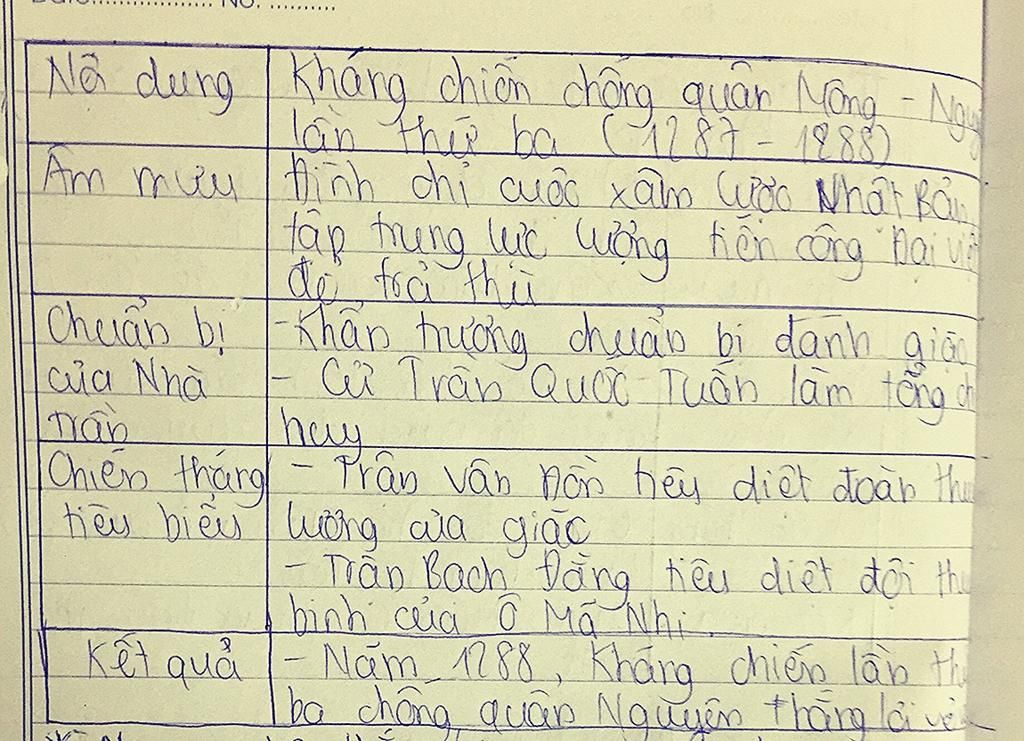 No. ..........
Nộ dung
Kháng chiến chống quân Mông -
lần thứ ba (1287 - 1288)
Âm mưu
Đình chỉ cuộc xâm lược Nhật
tập trung lực lượng tiến công Đại
để trả thù
Chuẩn bị
của Nhà
Trần
- Khẩn trương chuẩn bị đánh giặc
- Cử Trần Quốc Tuấn làm tổng
huy
Chiến thắng
tiêu biểu
- Trận Vân Đồn tiêu diệt đoàn
lương của giặc
- Trận Bạch Đằng tiêu diệt đội
binh của Ô Mã Nhi.
Kết quả
- Năm 1288, Kháng chiến lần
ba chống quân Nguyên thắng lợi